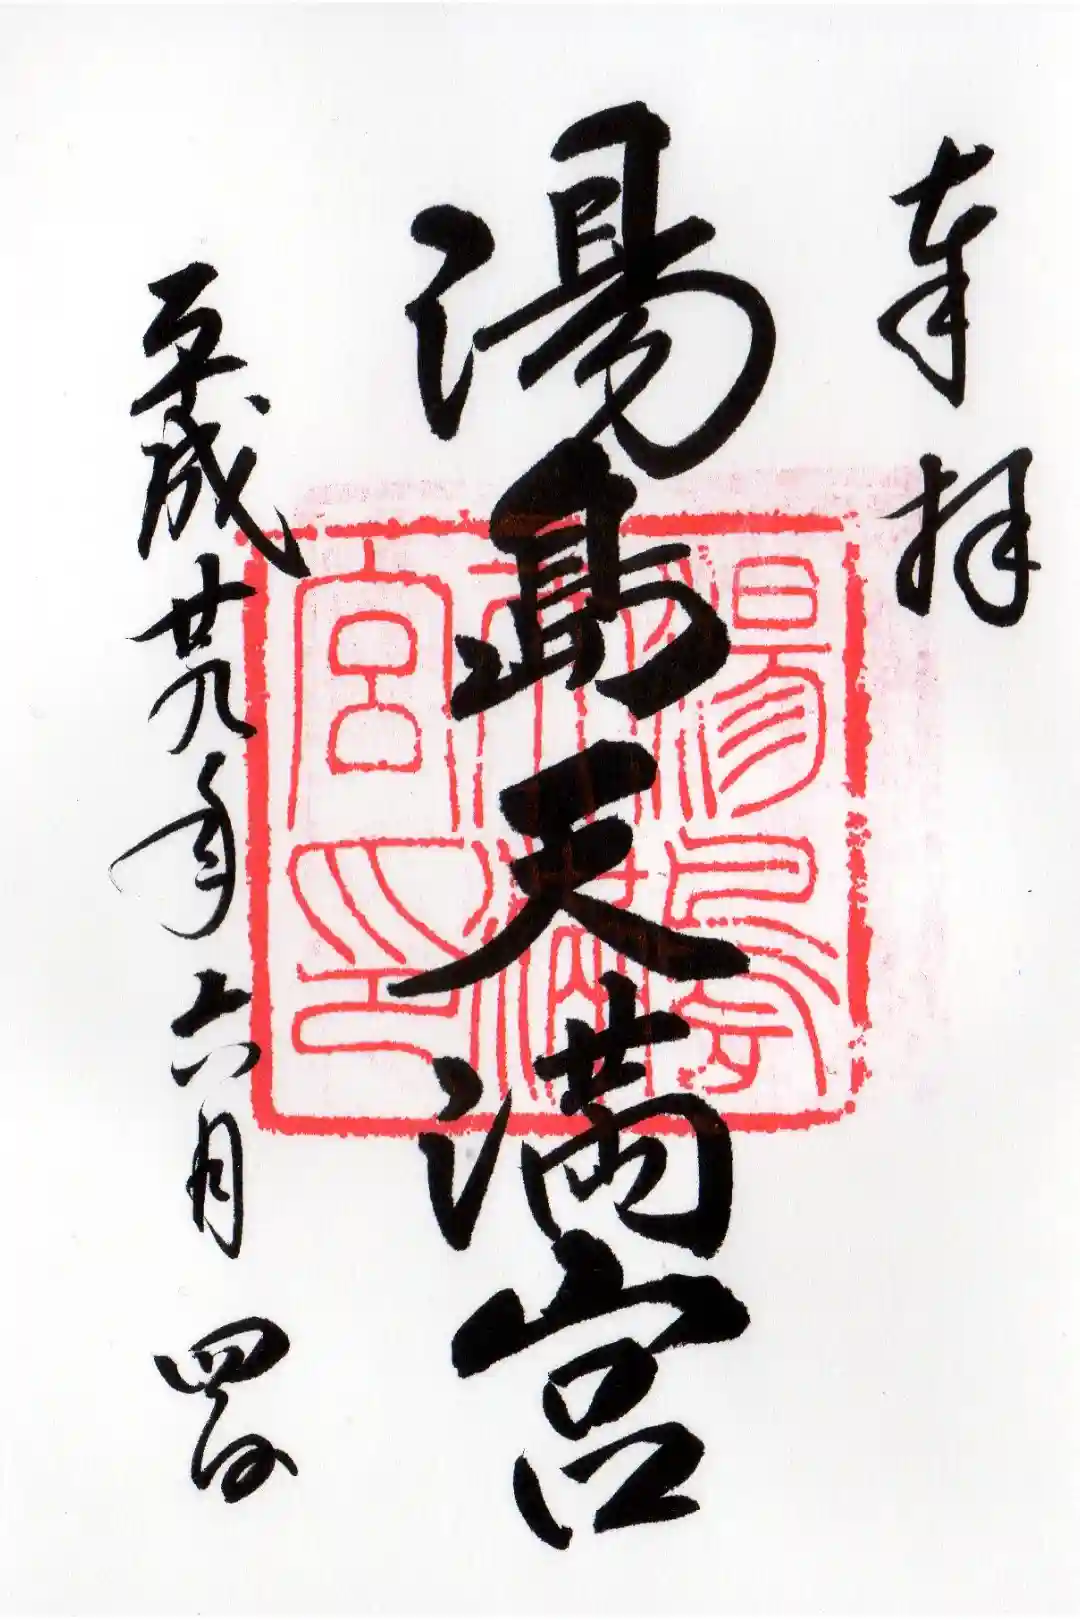 奉拝
湯島天満宮
平成廿九年六月四日
湯島
天満
宮印